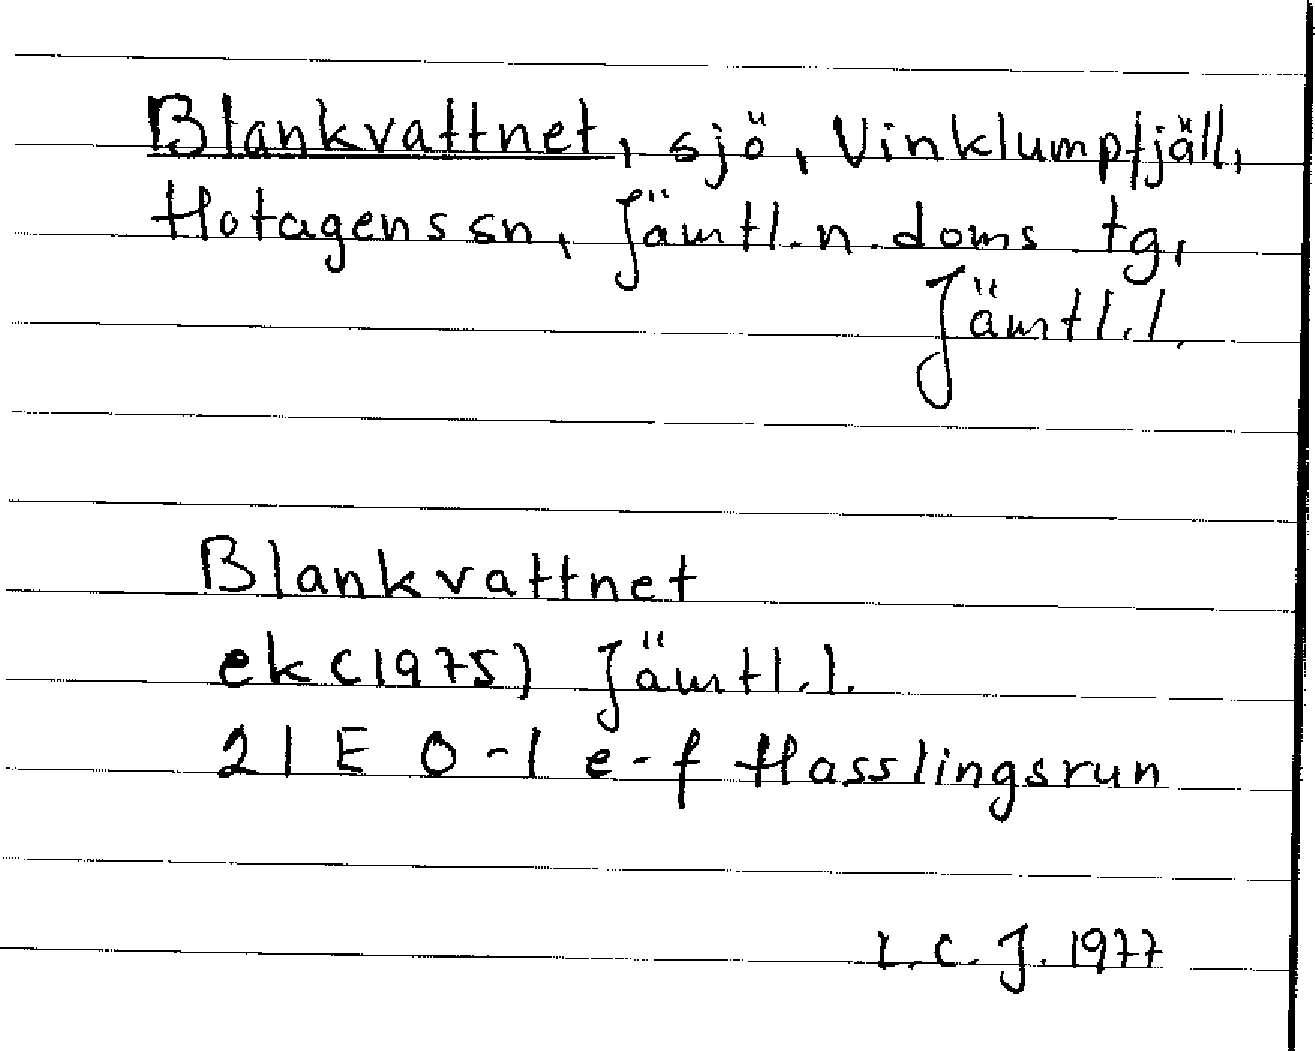 Blankvattnet, sjö, Vinklumpfjäll,
Hotagens sn, Jämtl. n. doms tg,
Jämtl. l.
Blankvattnet
ek (1975) Jämtl. l.
21 E 0-1 e-f Hasslingsrun
L.C.J. 1977